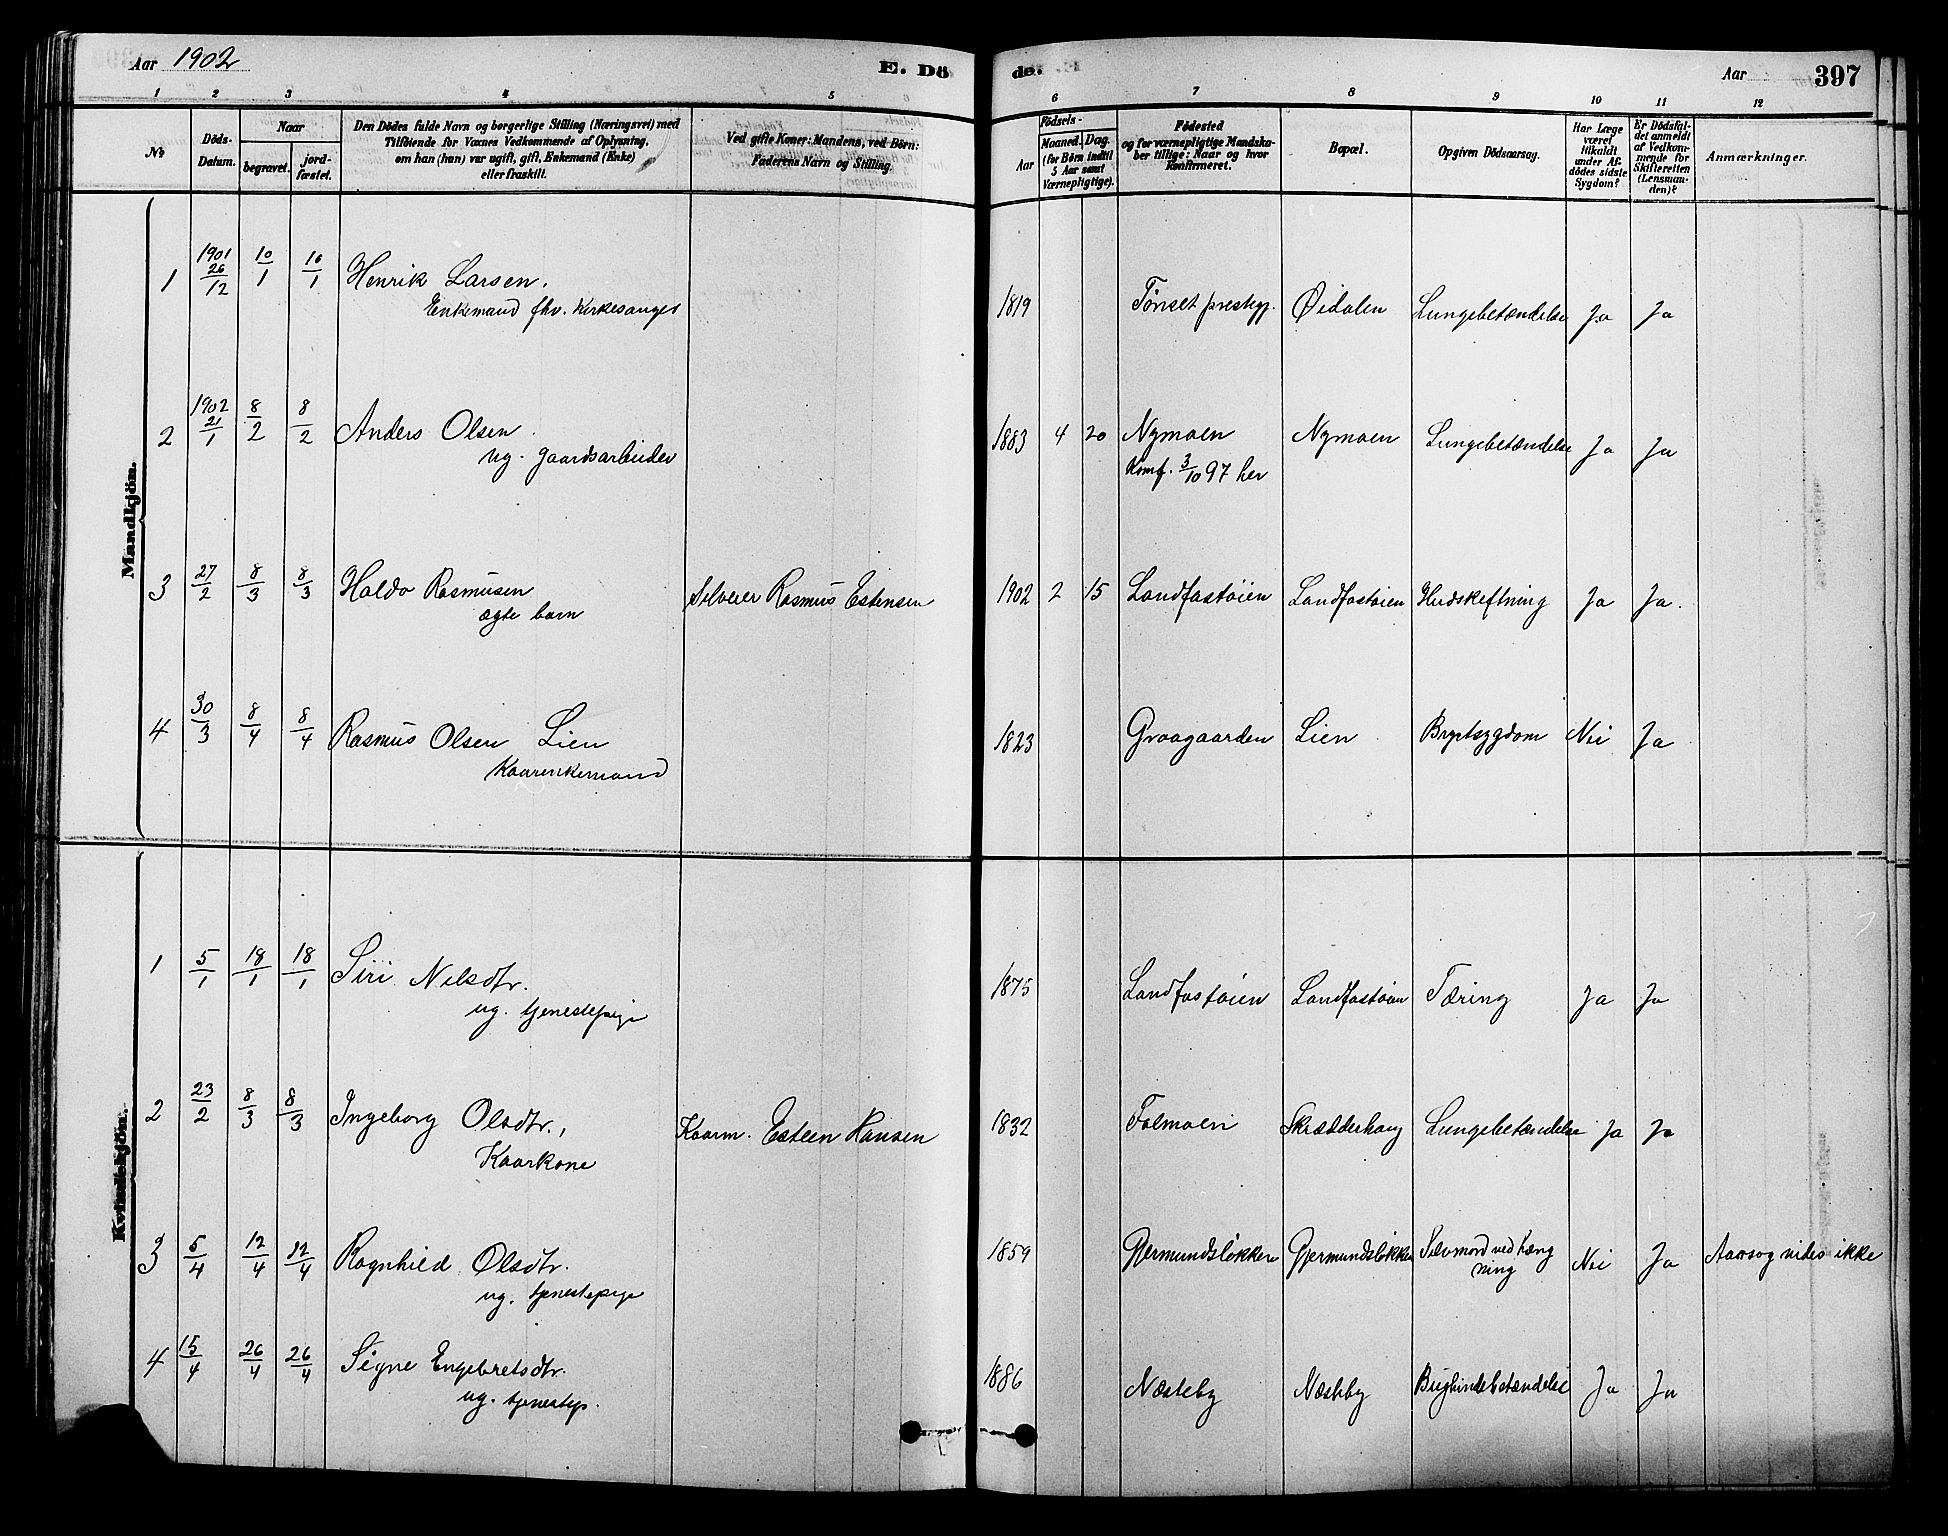 Aar 1902
E. Dö
de.
Aar
397
1 2 3 4 5
6 7 8 9 10 11 12
No
Döds-
Datum.
Naar
begravet.
jord-
fæstet.
Den Dödes fulde Navn og borgerlige Stilling (Næringsvei) med
Tilföiende for Voxnes Vedkommende af Oplysning,
om han (hun) var ugift, gift, Enkemand (Enke)
eller fraskilt.
Ved gifte Koner: Mandens, ved Börn:
Faderens Navn og Stilling.
Födsels-
Aar
Maaned.
Dag.
(for Börn indtil
5 Aar samt
Værnepligtige).
Födested
og for værnepligtige Mandska-
ber tillige: Naar og hvor
Konfirmeret.
Bopæl.
Opgiven Dödsaarsag.
Har Læge
været
tilkaldt
under Af-
dödes sidste
Sygdom?
Er Dödsfal-
det anmeldt
af Vedkom-
mende for
Skifteretten
(Lensman-
den)?
Anmærkninger.
Mandkjön.
1 1901 26/12 10/1 10/1 Henrik Larsen. 1819 Tönset prestegj. Øidalen Lungebetændelse Ja Ja
Enkemand fhv. Kirkesanger
2 1902 21/1 8/2 8/2 Anders Olsen 1883 4 20 Nymoen Nymoen Lungebetændelse Ja Ja
ug. gaardsarbeider Konf. 3/10 97 her
3 27/2 8/3 8/3 Haldo Rasmusen Selveier Rasmus Estensen 1902 2 15 Landfastöien Landfastöien Ja Ja.
ægte barn
4 30/3 8/4 8/4 Rasmus Olsen Lien 1823 Graagaarden Lien Brystsygdom Nei Ja
Kaarenkemand
Kvindekjön.
1 5/1 18/1 18/1 Siri Nilsdtr. 1875 Landfastöien Landfastöien Tæring Ja Ja
ug. tjenestepige
2 23/2 8/3 8/3 Ingeborg Olsdtr., Kaarm. Esteen Hansen 1832 Folmoen Skrædderhaug Lungebetændelse Ja Ja
Kaarkone
3 5/4 12/4 12/4 Ragnhild Olsdtr. 1859 Gjermundslökken Gjermundslökken Selvmord ved hæng Nei Ja Aarsag vides ikke
ug. tjenestepige ning
4 15/4 26/4 26/4 Signe Engebretsdtr. 1886 Næsteby Næsteby Bughindebetændelse Ja Ja
ug. tjenestep.